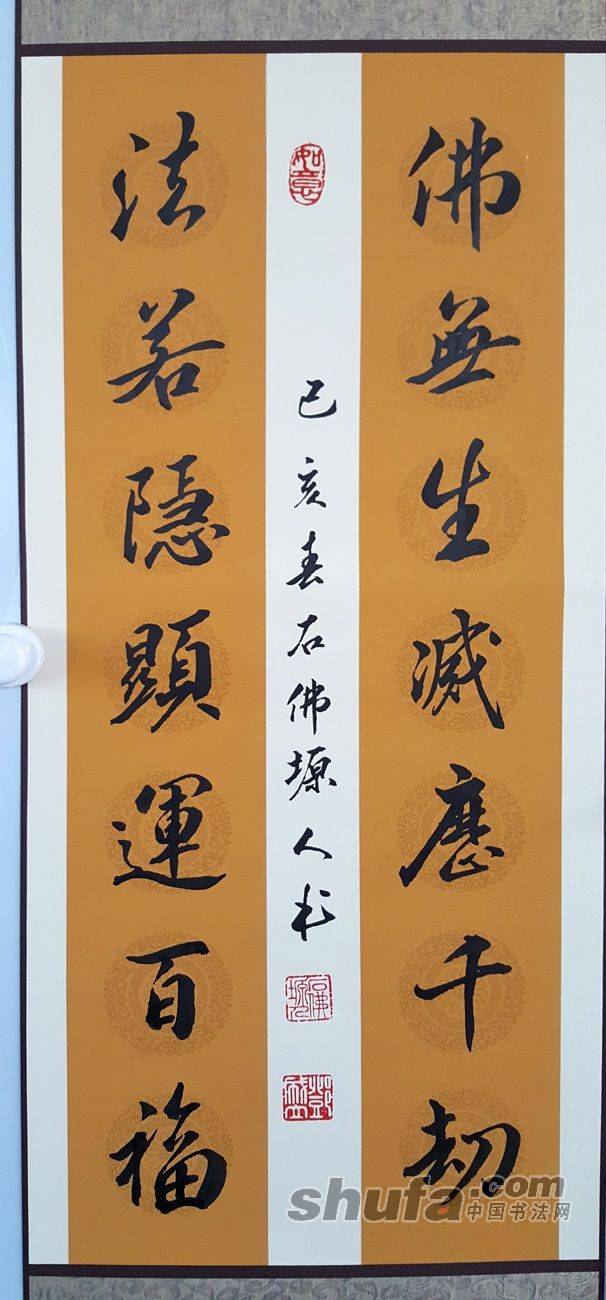 佛無生滅歷千劫
法若隱顯運百福
如意
己亥春石佛塬人书
shufa.com
中国书法网